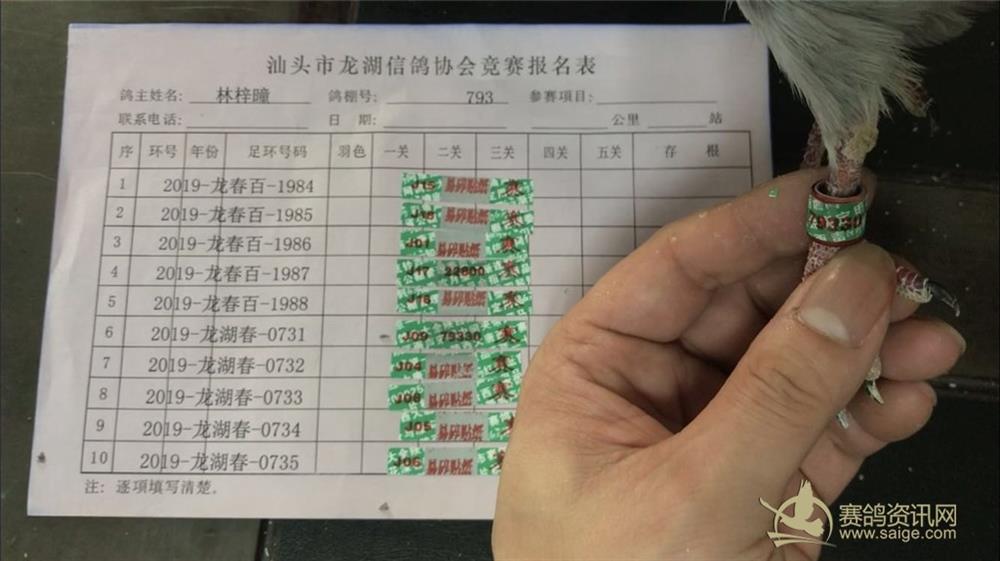 汕头市龙湖信鸽协会竞赛报名表
鸽主姓名: 林梓瞳 鸽棚号: 793 参赛项目:
联系电话: 日 期: 公里 站
序 环号 年份 足环号码 羽色 一关 二关 三关 四关 五关 存 根
1 2019-龙春百-1984 J15 易碎贴纸 赛
2 2019-龙春百-1985 易碎贴纸 赛
3 2019-龙春百-1986 J01 易碎贴纸 赛
4 2019-龙春百-1987 J17 22800 赛
5 2019-龙春百-1988 易碎贴纸 赛
6 2019-龙湖春-0731 J09 79330 赛
7 2019-龙湖春-0732 J04 易碎贴纸 赛
8 2019-龙湖春-0733 易碎贴纸 赛
9 2019-龙湖春-0734 J05 易碎贴纸 赛
10 2019-龙湖春-0735 易碎贴纸
注: 逐项填写清楚。
79330
赛鸽资讯网
www.saige.com